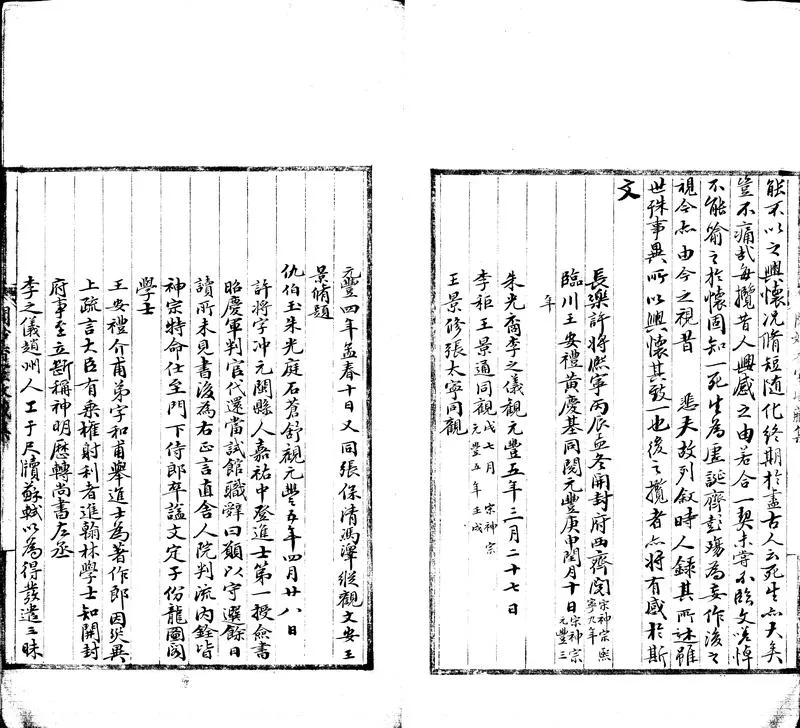 能不以之興懷况脩短随化終期於盡古人云死生亦大矣
豈不痛哉每攬昔人興感之由若合一契未嘗不臨文嗟悼
不能喻之於懷固知一死生為虛誕齊彭殤為妄作後之
視今亦由今之視昔 悲夫故列叙時人録其所述雖
世殊事異所以興懷其致一也後之攬者亦将有感於斯
文
長樂許将熙寧丙辰孟冬開封府西齋閱宋神宗熙寧九年
臨川王安禮黄慶基同閱元豐庚申閏月十日宋神宗元豐三
年
朱光裔李之儀觀元豐五年三月二十七日
李秬王景通同觀戊七月 宋神宗元豐五年壬戌
王景修張太寧同觀
元豐四年孟春十日又同張保清馮澤縱觀文安王
景脩題
仇伯玉朱光庭石蒼舒觀元豐五年四月廿八日
許将字冲元閩縣人嘉祐中登進士第一授僉書
昭慶軍判官代還當試館職辭曰願以守選餘日
讀所未見書後為右正言直舍人院判流内銓皆
神宗特命仕至門下侍郎卒謚文定子份龍圖閣
學士
王安禮介甫弟字和甫舉進士為著作郎因災異
上疏言大臣有乘權射利者進翰林學士知開封
府事至立斷稱神明歷轉尚書左丞
李之儀趙州人工于尺牘蘇軾以為得發遣三昧